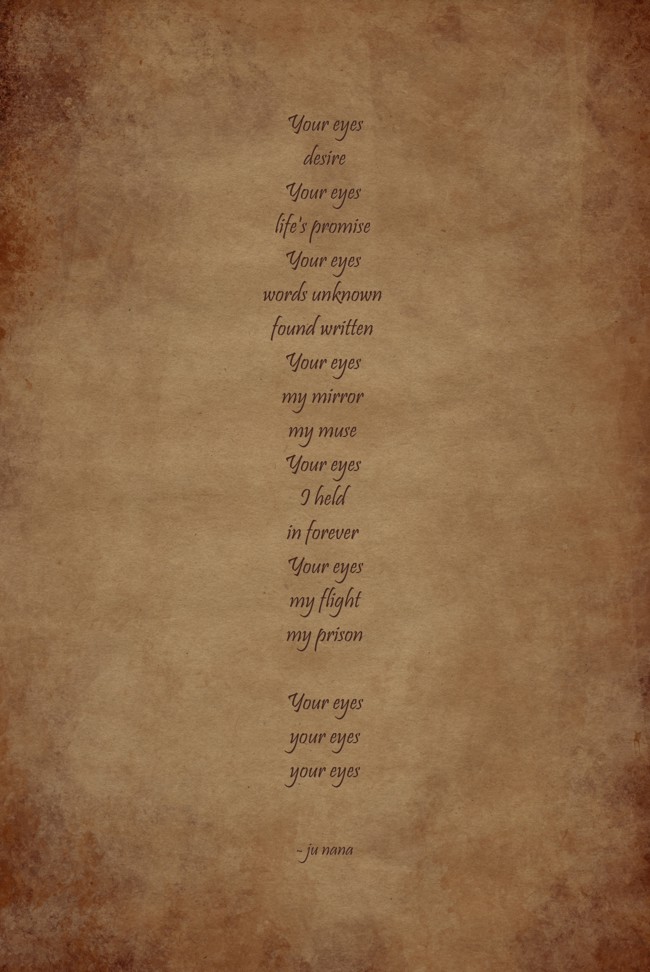 Your eyes
desire
Your eyes
life's promise
Your eyes
words unknown
found written
Your eyes
my mirror
my muse
Your eyes
I held
in forever
Your eyes
my flight
my prison
Your eyes
your eyes
your eyes
~ ju nana